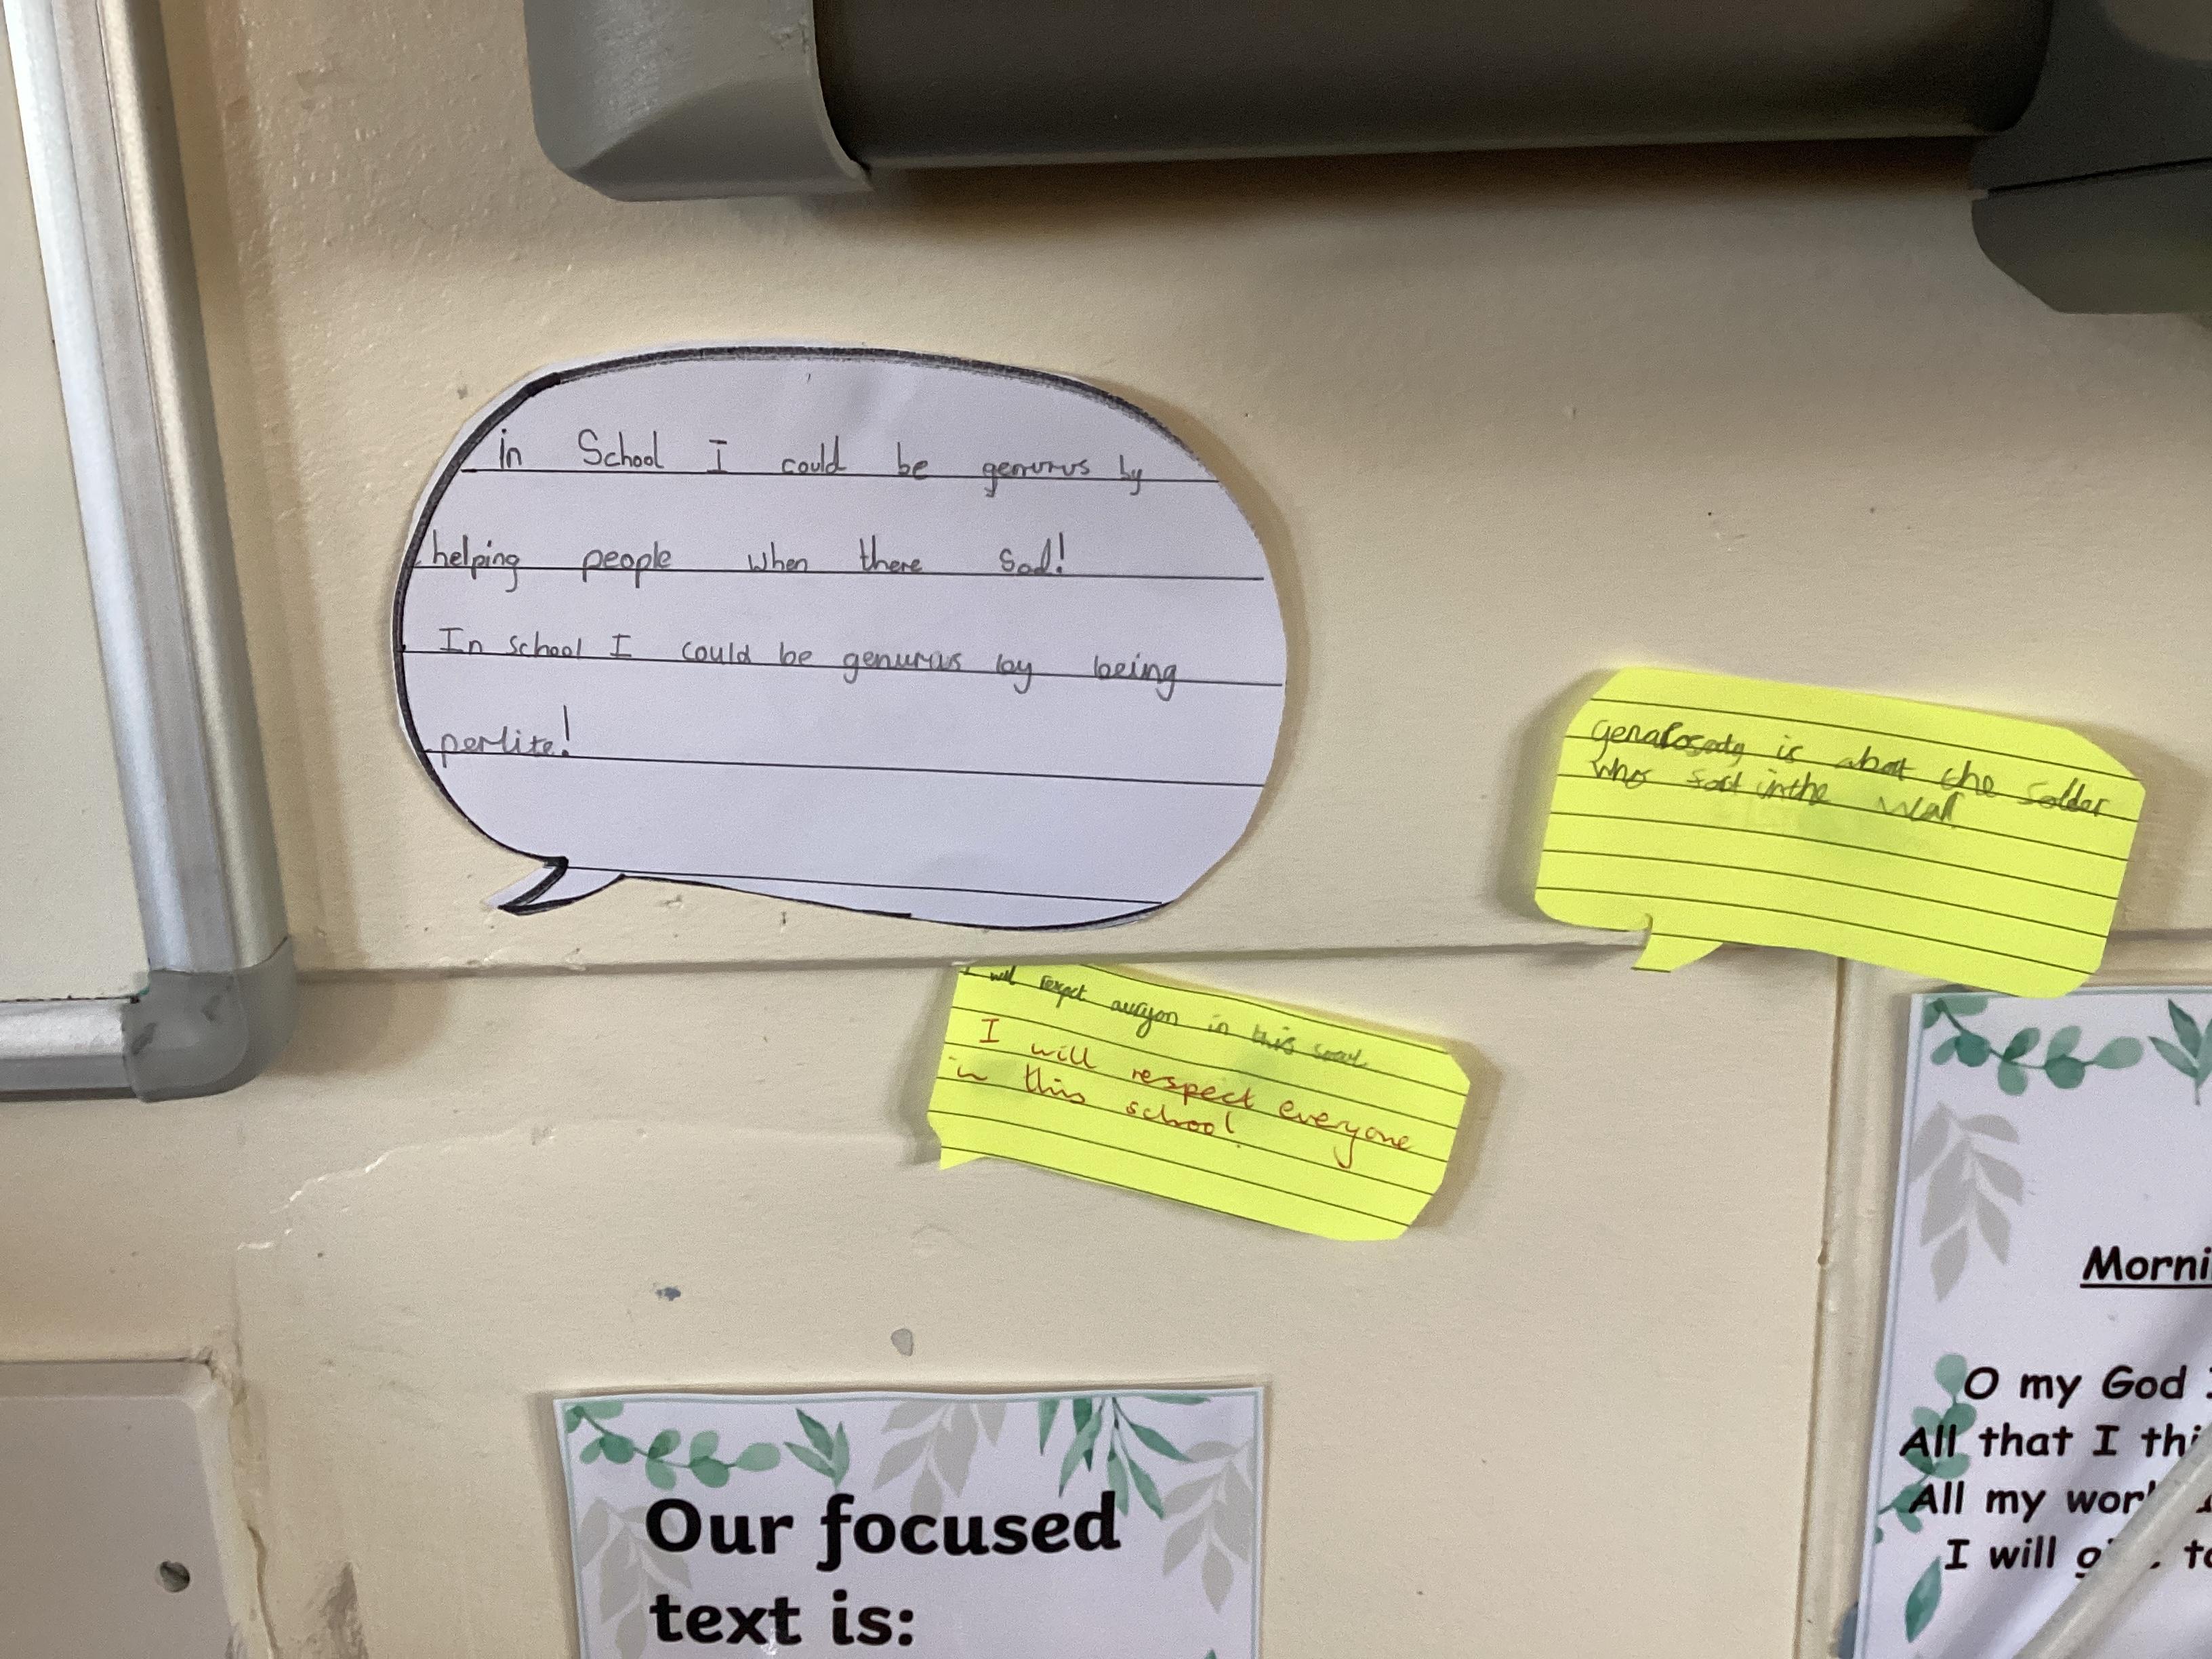 in School I could be genurus by
helping people when there sad!
In school I could be genurus by being
perlite!
is abot the solder
whos in the
I will respect in this
I will respect everyone
in this school.
Morni
O my God I
All that I thi
All my wor
I will
Our focused
text is: